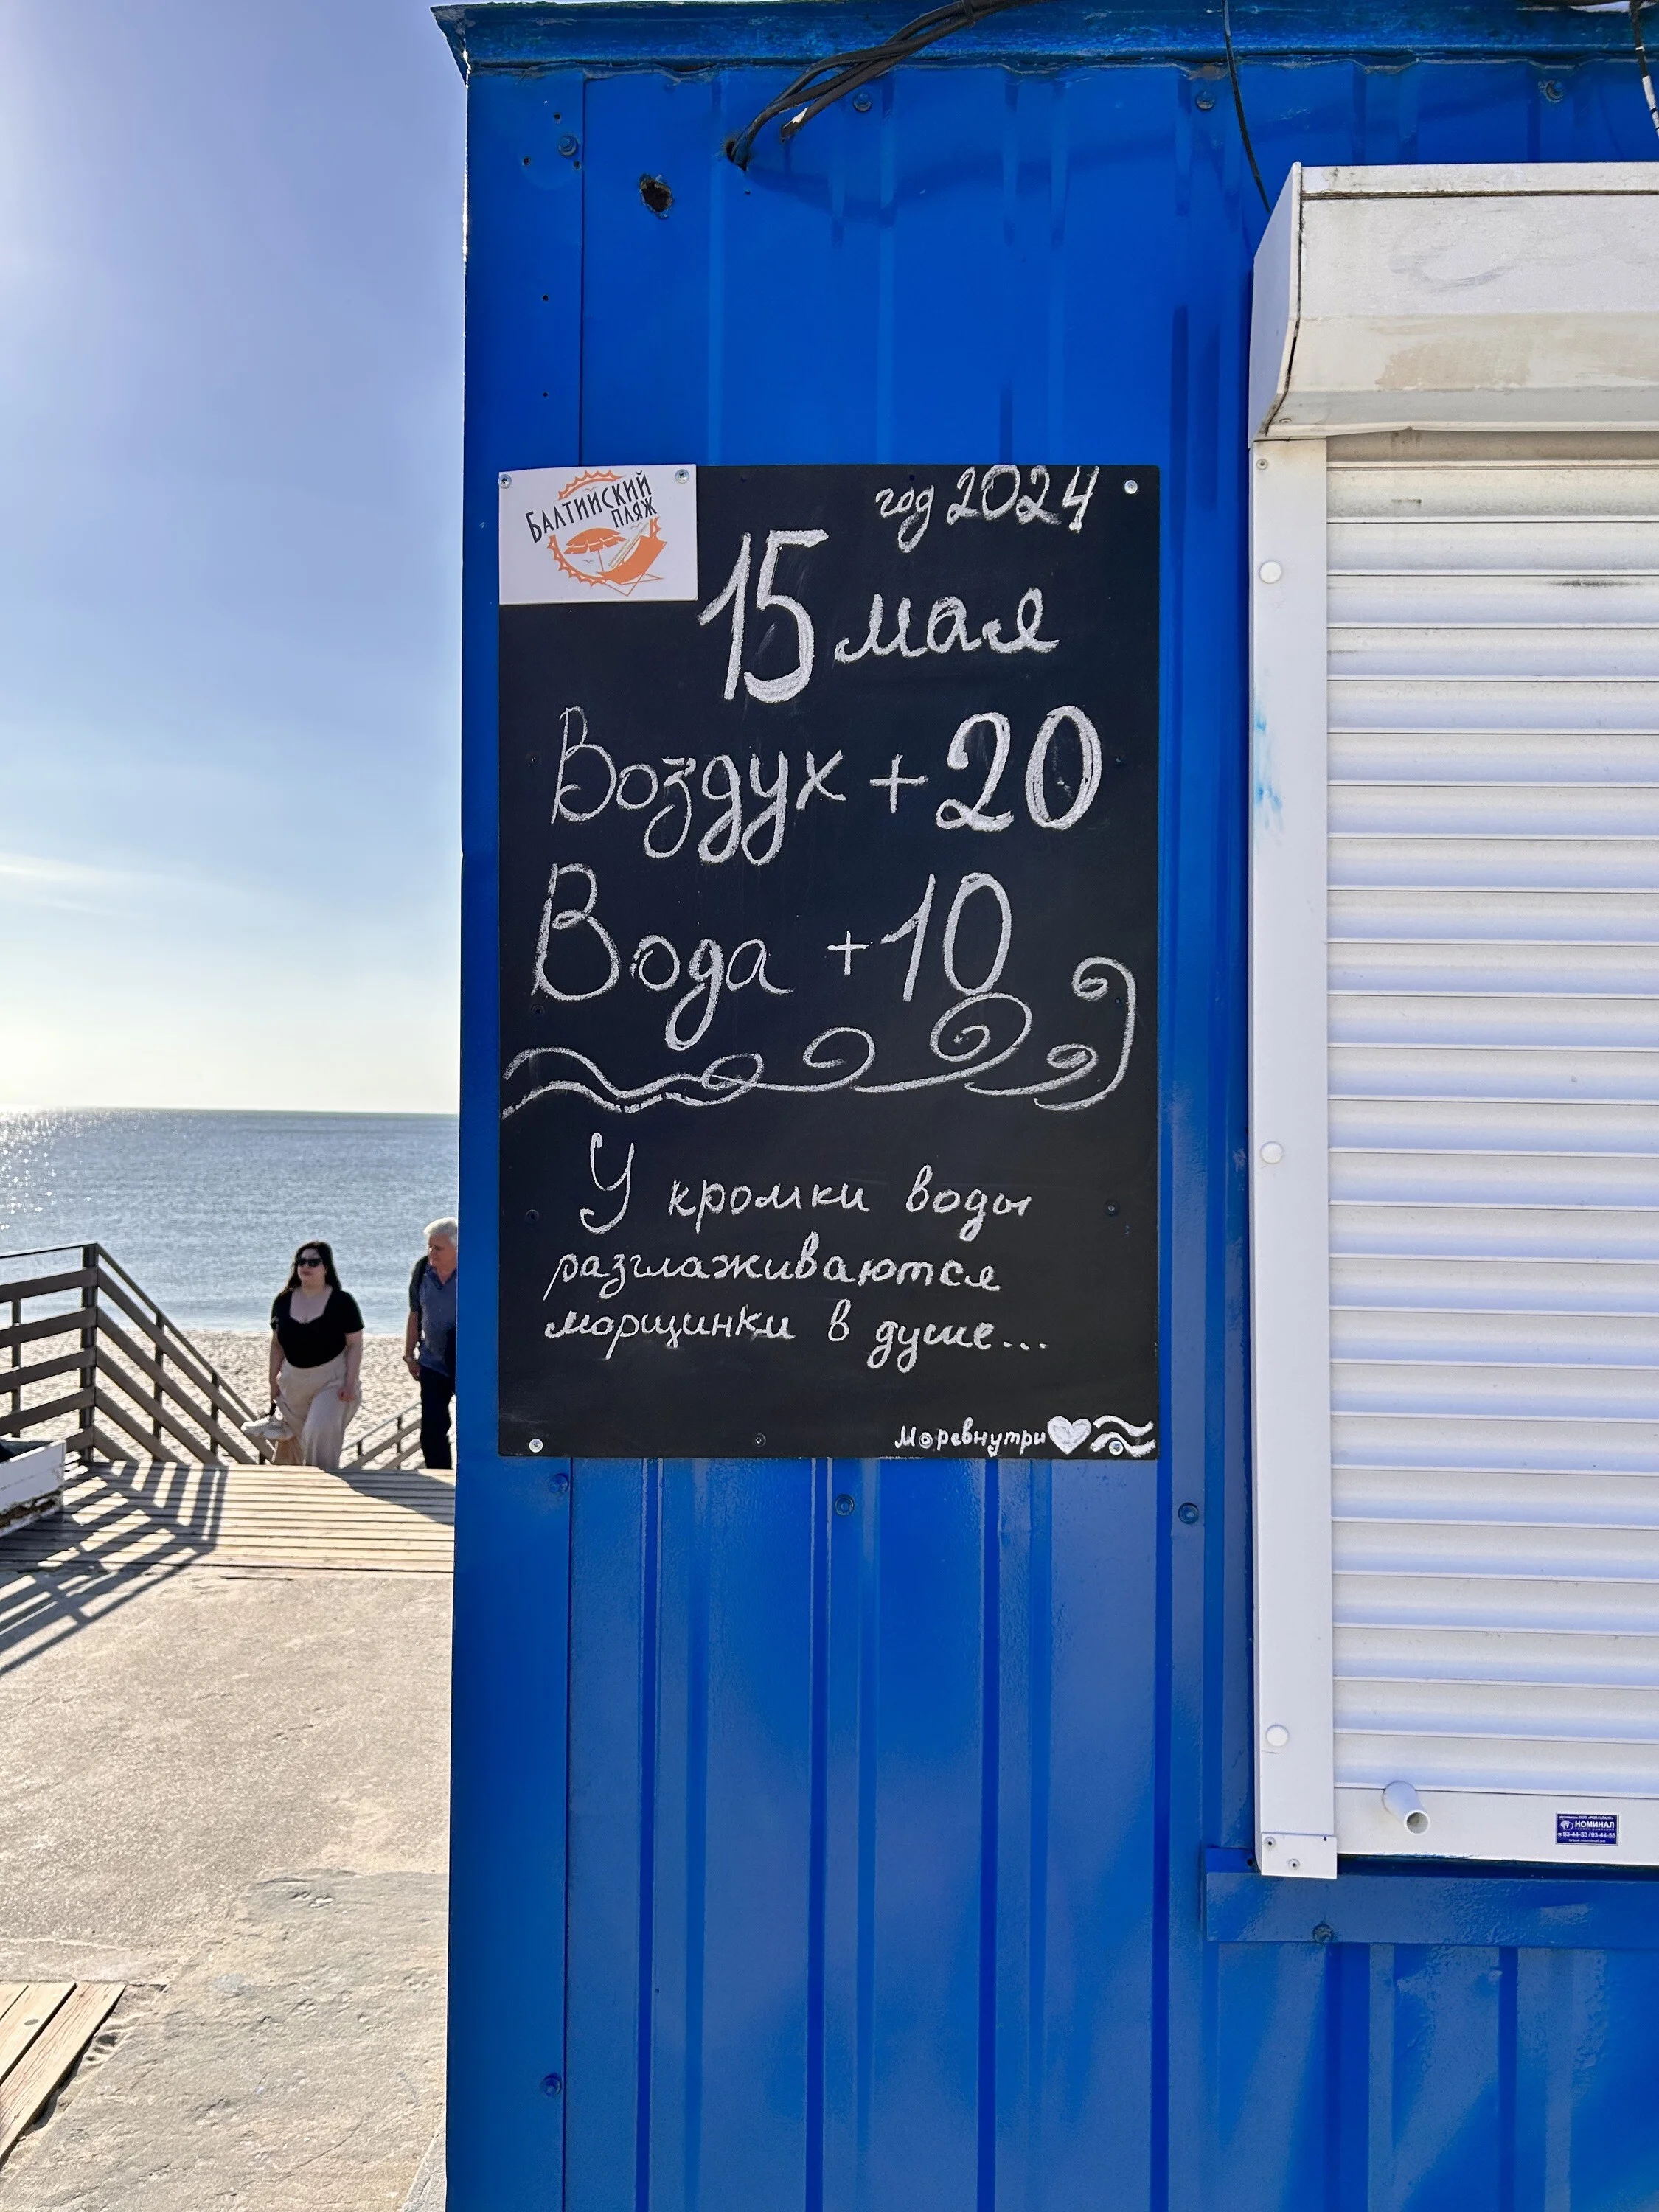 БАЛТИЙСКИЙ
ПЛЯЖ
год 2024
15 мая
Воздух +20
Вода +10
У кромки воды
разглаживаются
морщинки в душе...
Моревнутри
НОМИНАЛ
93-44-33/93-44-55